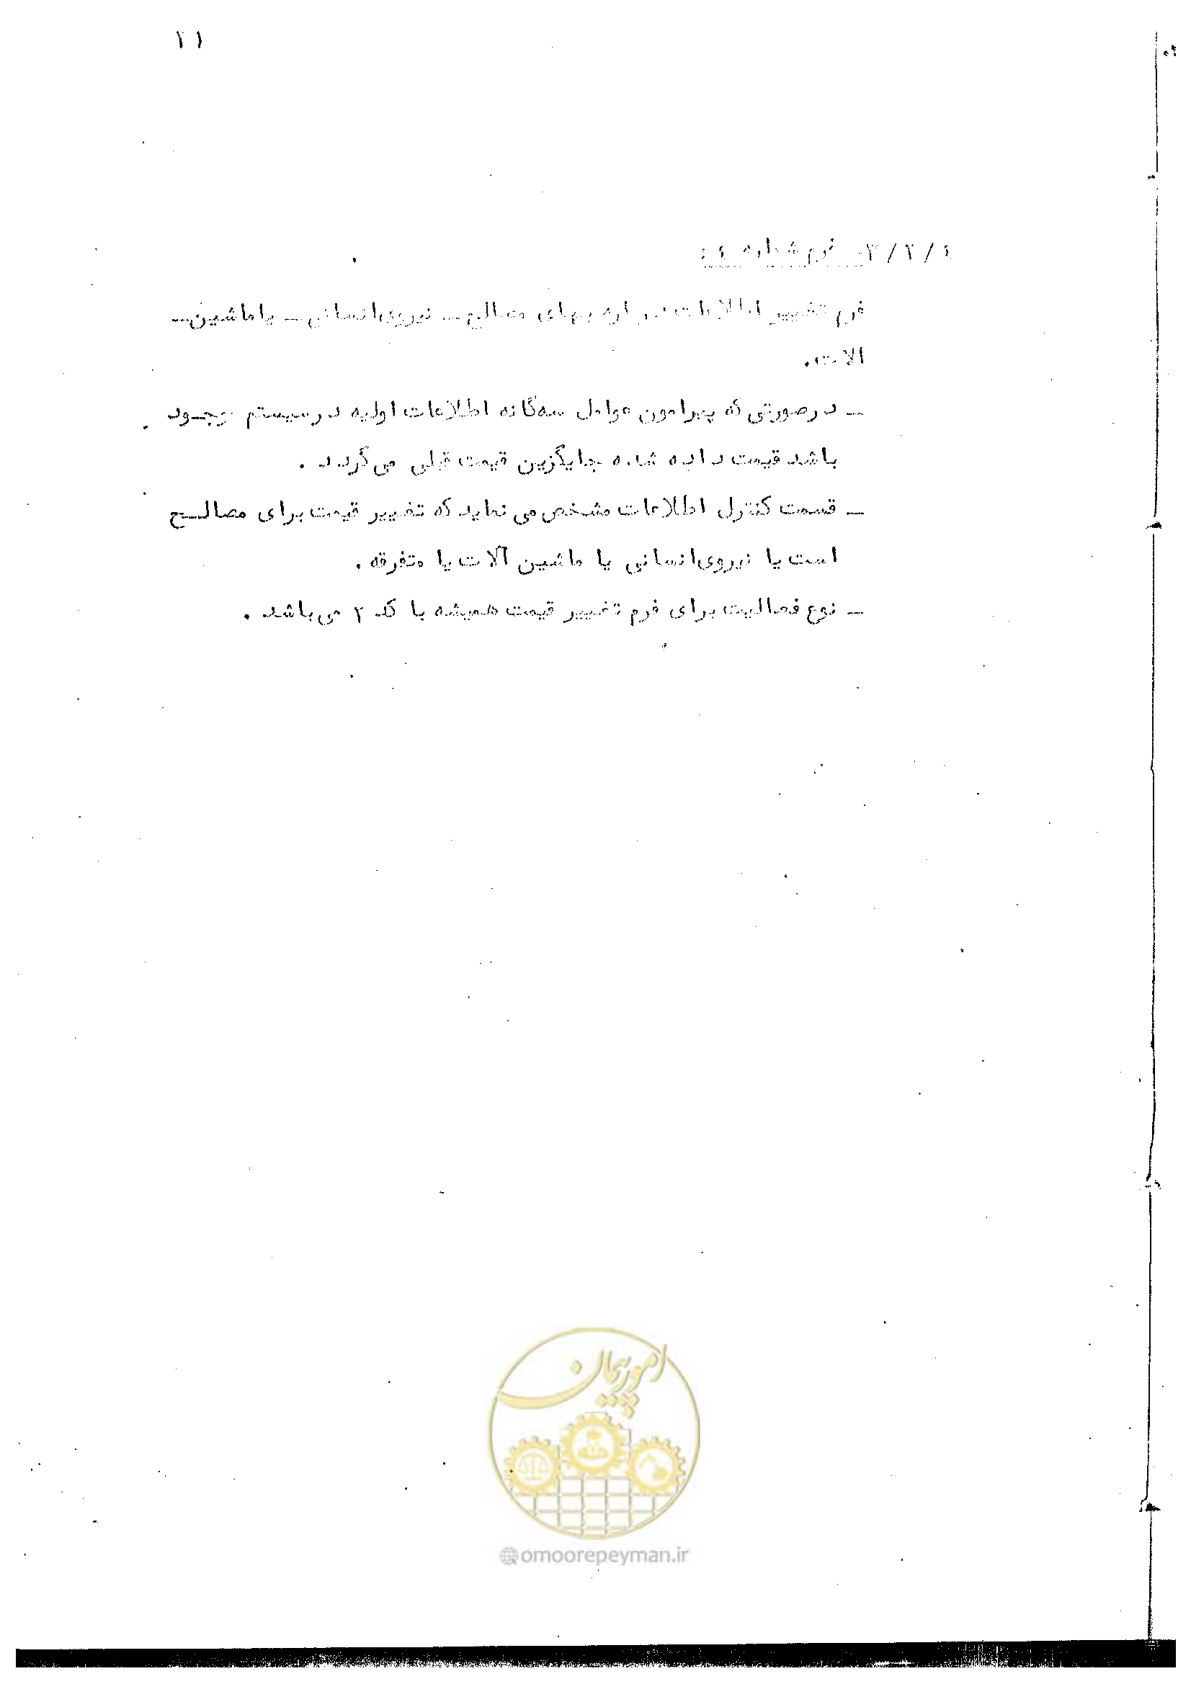 ۲۱
۴/۲/۳- فرم شماره ۴ :
فرم تغییر اطلاعات درباره بهای مصالح ــ نیروی‌انسانی ــ یا ماشین ــ
آلات.
ــ در صورتی که پیرامون عوامل سه‌گانه اطلاعات اولیه در سیستم موجود
باشد قیمت داده شده جایگزین قیمت قبلی می‌گردد .
ــ قسمت کنترل اطلاعات مشخص می نماید که تغییر قیمت برای مصالح
است یا نیروی‌انسانی یا ماشین آلات یا متفرقه .
ــ نوع فعالیت برای فرم تغییر قیمت همیشه با کد ۲ می‌باشد .
امور پیمان
@omoorepeyman.ir